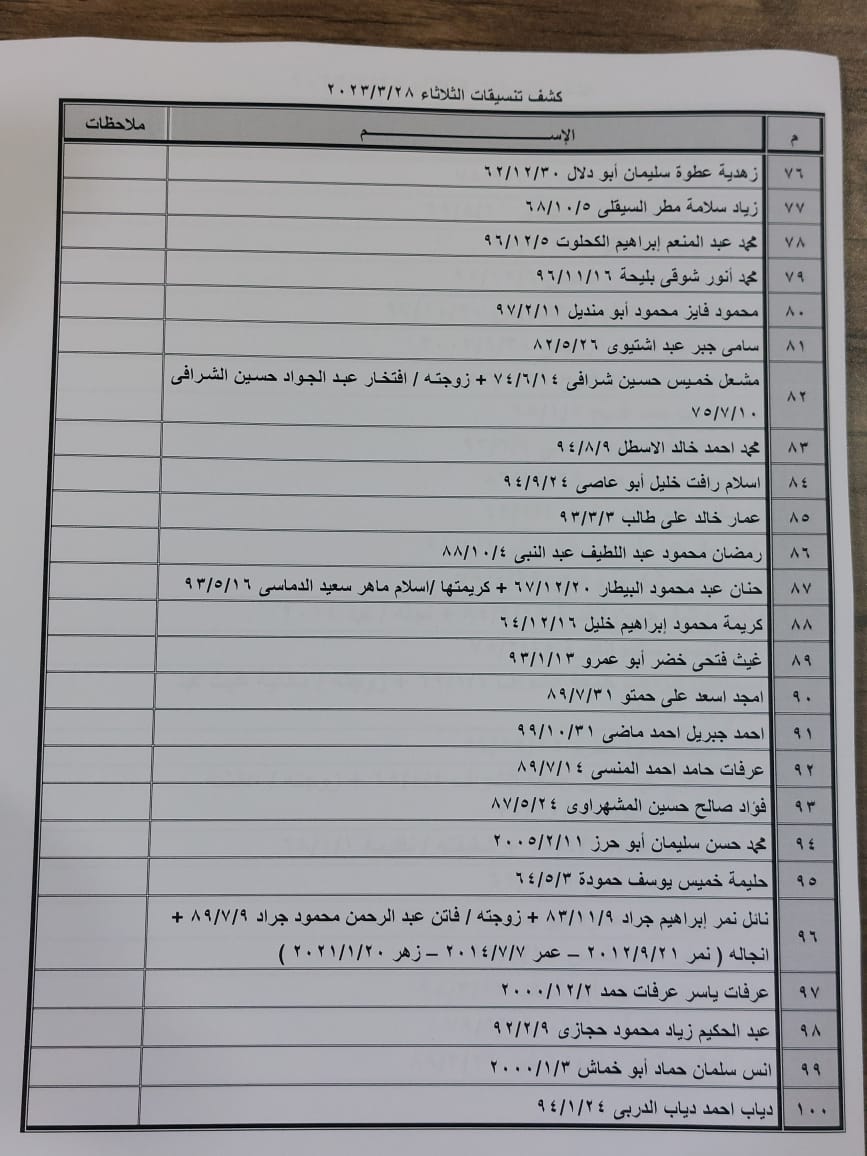 كشف تنسيقات الثلاثاء ٢٠٢٣/٣/٢٨
م الإســـــــم ملاحظات
٧٦ زهدية عطوة سليمان أبو دلال ٦٢/١٢/٣٠
٧٧ زياد سلامة مطر السيقلى ٦٨/١٠/٥
٧٨ محمد عبد المنعم إبراهيم الكحلوت ٩٦/١٢/٥
٧٩ محمد أنور شوقى بليحة ٩٦/١١/١٦
٨٠ محمود فايز محمود أبو منديل ٩٧/٢/١١
٨١ سامى جبر عبد اشتيوى ٨٢/٥/٢٦
٨٢ مشعل خميس حسين شرافى ٧٤/٦/١٤ + زوجته / افتخار عبد الجواد حسين الشرافى
٧٥/٧/١٠
٨٣ محمد احمد خالد الاسطل ٩٤/٨/٩
٨٤ اسلام رافت خليل أبو عاصى ٩٤/٩/٢٤
٨٥ عمار خالد على طالب ٩٣/٣/٣
٨٦ رمضان محمود عبد اللطيف عبد النبى ٨٨/١٠/٤
٨٧ حنان عبد محمود البيطار ٦٧/١٢/٢٠ + كريمتها /اسلام ماهر سعيد الدماسى ٩٣/٥/١٦
٨٨ كريمة محمود إبراهيم خليل ٦٤/١٢/١٦
٨٩ غيث فتحى خضر أبو عمرو ٩٣/١/١٣
٩٠ امجد اسعد على حمتو ٨٩/٧/٣١
٩١ احمد جبريل احمد ماضى ٩٩/١٠/٣١
٩٢ عرفات حامد احمد المنسى ٨٩/٧/١٤
٩٣ فؤاد صالح حسين المشهراوى ٨٧/٥/٢٤
٩٤ محمد حسن سليمان أبو حرز ٢٠٠٥/٢/١١
٩٥ حليمة خميس يوسف حمودة ٦٤/٥/٣
٩٦ نائل نمر إبراهيم جراد ٨٣/١١/٩ + زوجته / فاتن عبد الرحمن محمود جراد ٨٩/٧/٩ +
انجاله ( نمر ٢٠١٢/٩/٢١ – عمر ٢٠١٤/٧/٧ – زهر ٢٠٢١/١/٢٠ )
٩٧ عرفات ياسر عرفات حمد ٢٠٠٠/١٢/٢
٩٨ عبد الحكيم زياد محمود حجازى ٩٢/٢/٩
٩٩ انس سلمان حماد أبو خماش ٢٠٠٠/١/٣
١٠٠ دياب احمد دياب الدربى ٩٤/١/٢٤